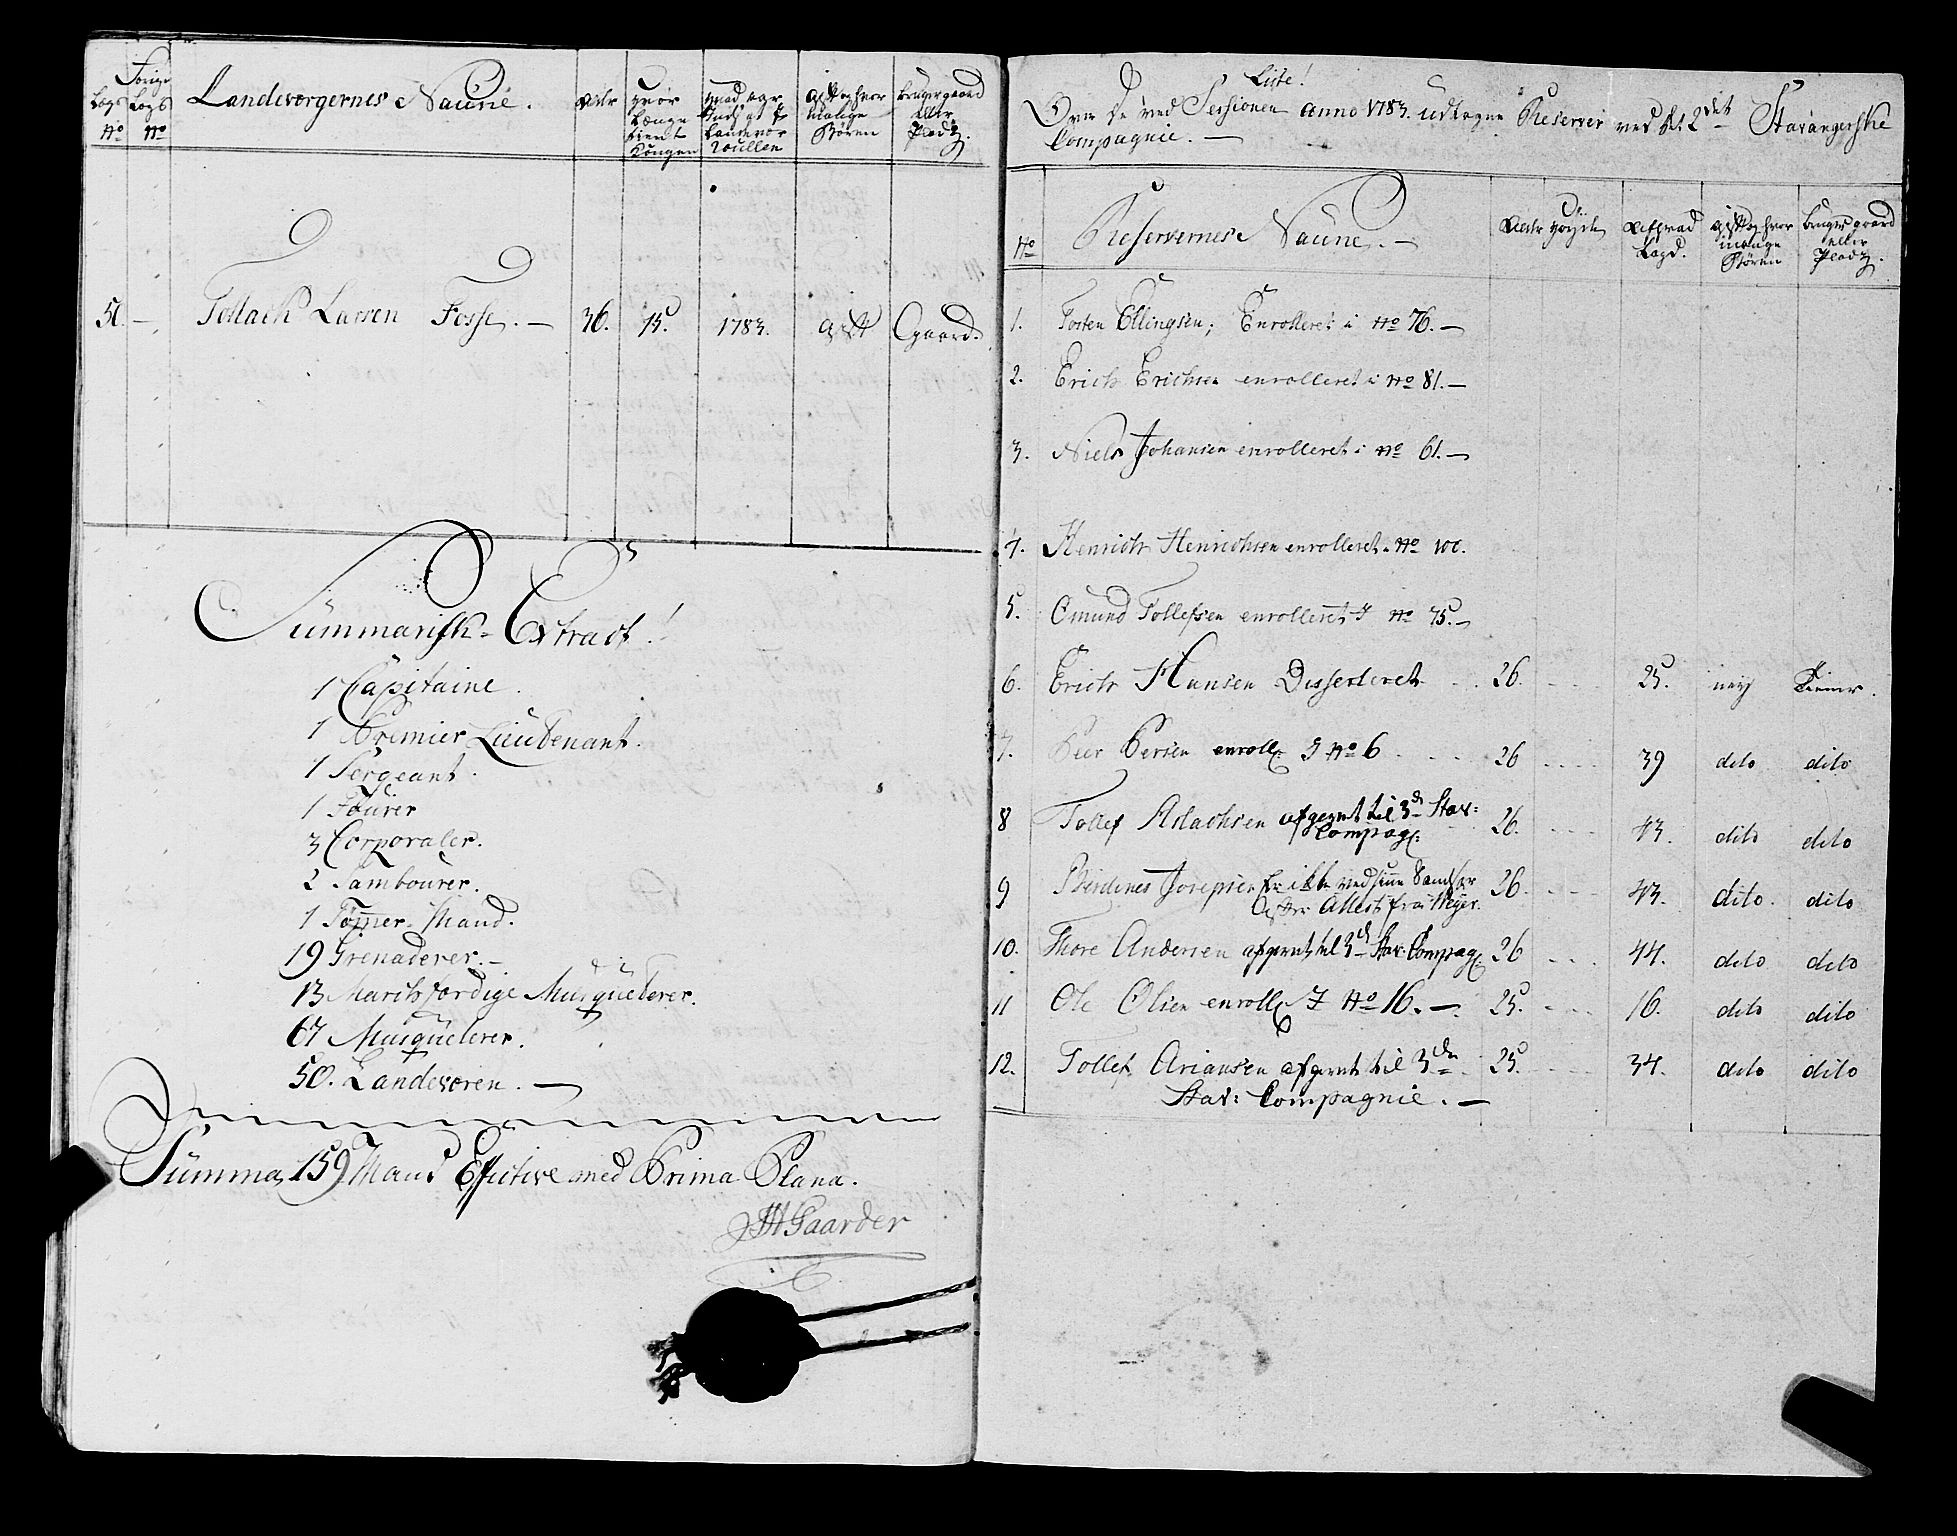 Lægs No
Forige Lægs No
Landeværgernes Naune.
Alder
hvor længe tient Kongen
hvad aar inds at i Landevær Roullen
gift og hvor mange Børen
bruger gaard eller Pladz.
50. — Tollach Larsen Fosse. — 36. 15. 1783. gift Gaard.
Summarisk Extract!
1 Capitaine.
1 Premier Lieutenant.
1 Sergeant.
1 Fourer
3 Corporaler.
2 Tambourer.
1 Tømer-Mand.
19 Grenaderer. —
13 Marchfærdige Musqueterer.
67 Musqueterer.
50. Landeværen. —
Summa 159 Mand Efective med Prima Plana.
JH Gaarder
Liste!
Over de ved Sessionen anno 1783 udtagne Reserver ved det 2det Stavangerske
Compagnie. —
No
Reservernes Naune. —
Alder
høyde
af hvad Lægd.
gift og hvor mange Børen
bruger gaard eller Pladz.
1. Torten Ellingsen, Enrolleret i No 76. —
2. Erich Erichsen enrolleret i No 81. —
3. Niels Johansen enrolleret i No 61. —
4. Henrich Henrichsen enrolleret i No 100.
5. Omund Tollefsen enrolleret I No 75. —
6. Erich Hansen Disserteret 26. 25. ney tiener.
7. Peer Persen enroll: I No 6 26 39 dito dito
8 Tollef Aslachsen afgivet til 3de Stav: 26. 43. dito dito
Compag:
9 Berdines Josepsen Er ikke ved sine Sandser 26. 43. dito dito
Efter Attest fra
10. Thore Andersen afgivet til 3de Stav: Compag: 26 44. dito dito
11 Ole Olsen enroll: I No 16. — 25. 16. dito dito
12. Tollef Ariansen afgivet til 3de 25. 34. dito dito
Stav: Compagnie. —